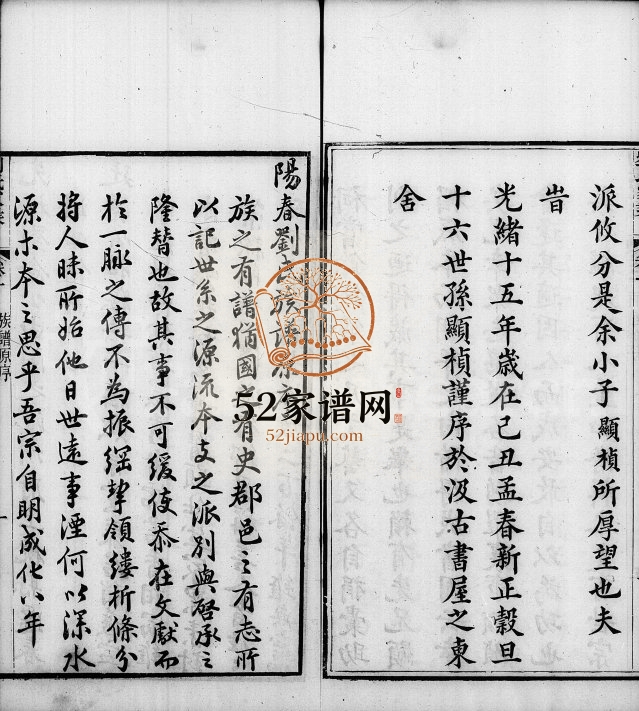 派攸分是余小子顯楨所厚望也夫
旹
光緒十五年歲在己丑孟春新正穀旦
十六世孫顯楨謹序於汲古書屋之東
舍
陽春劉氏族譜原序
族之有譜猶國之有史郡邑之有志所
以記世系之源流本支之派別與啓承之
隆替也故其事不可緩使忝在文獻而
於一脉之傳不為振綱挈領縷析條分
將人昧所始他日世遠事湮何以深水
源木本之思乎吾宗自明成化八年
族譜原序
一
52家谱网
52jiapu.com